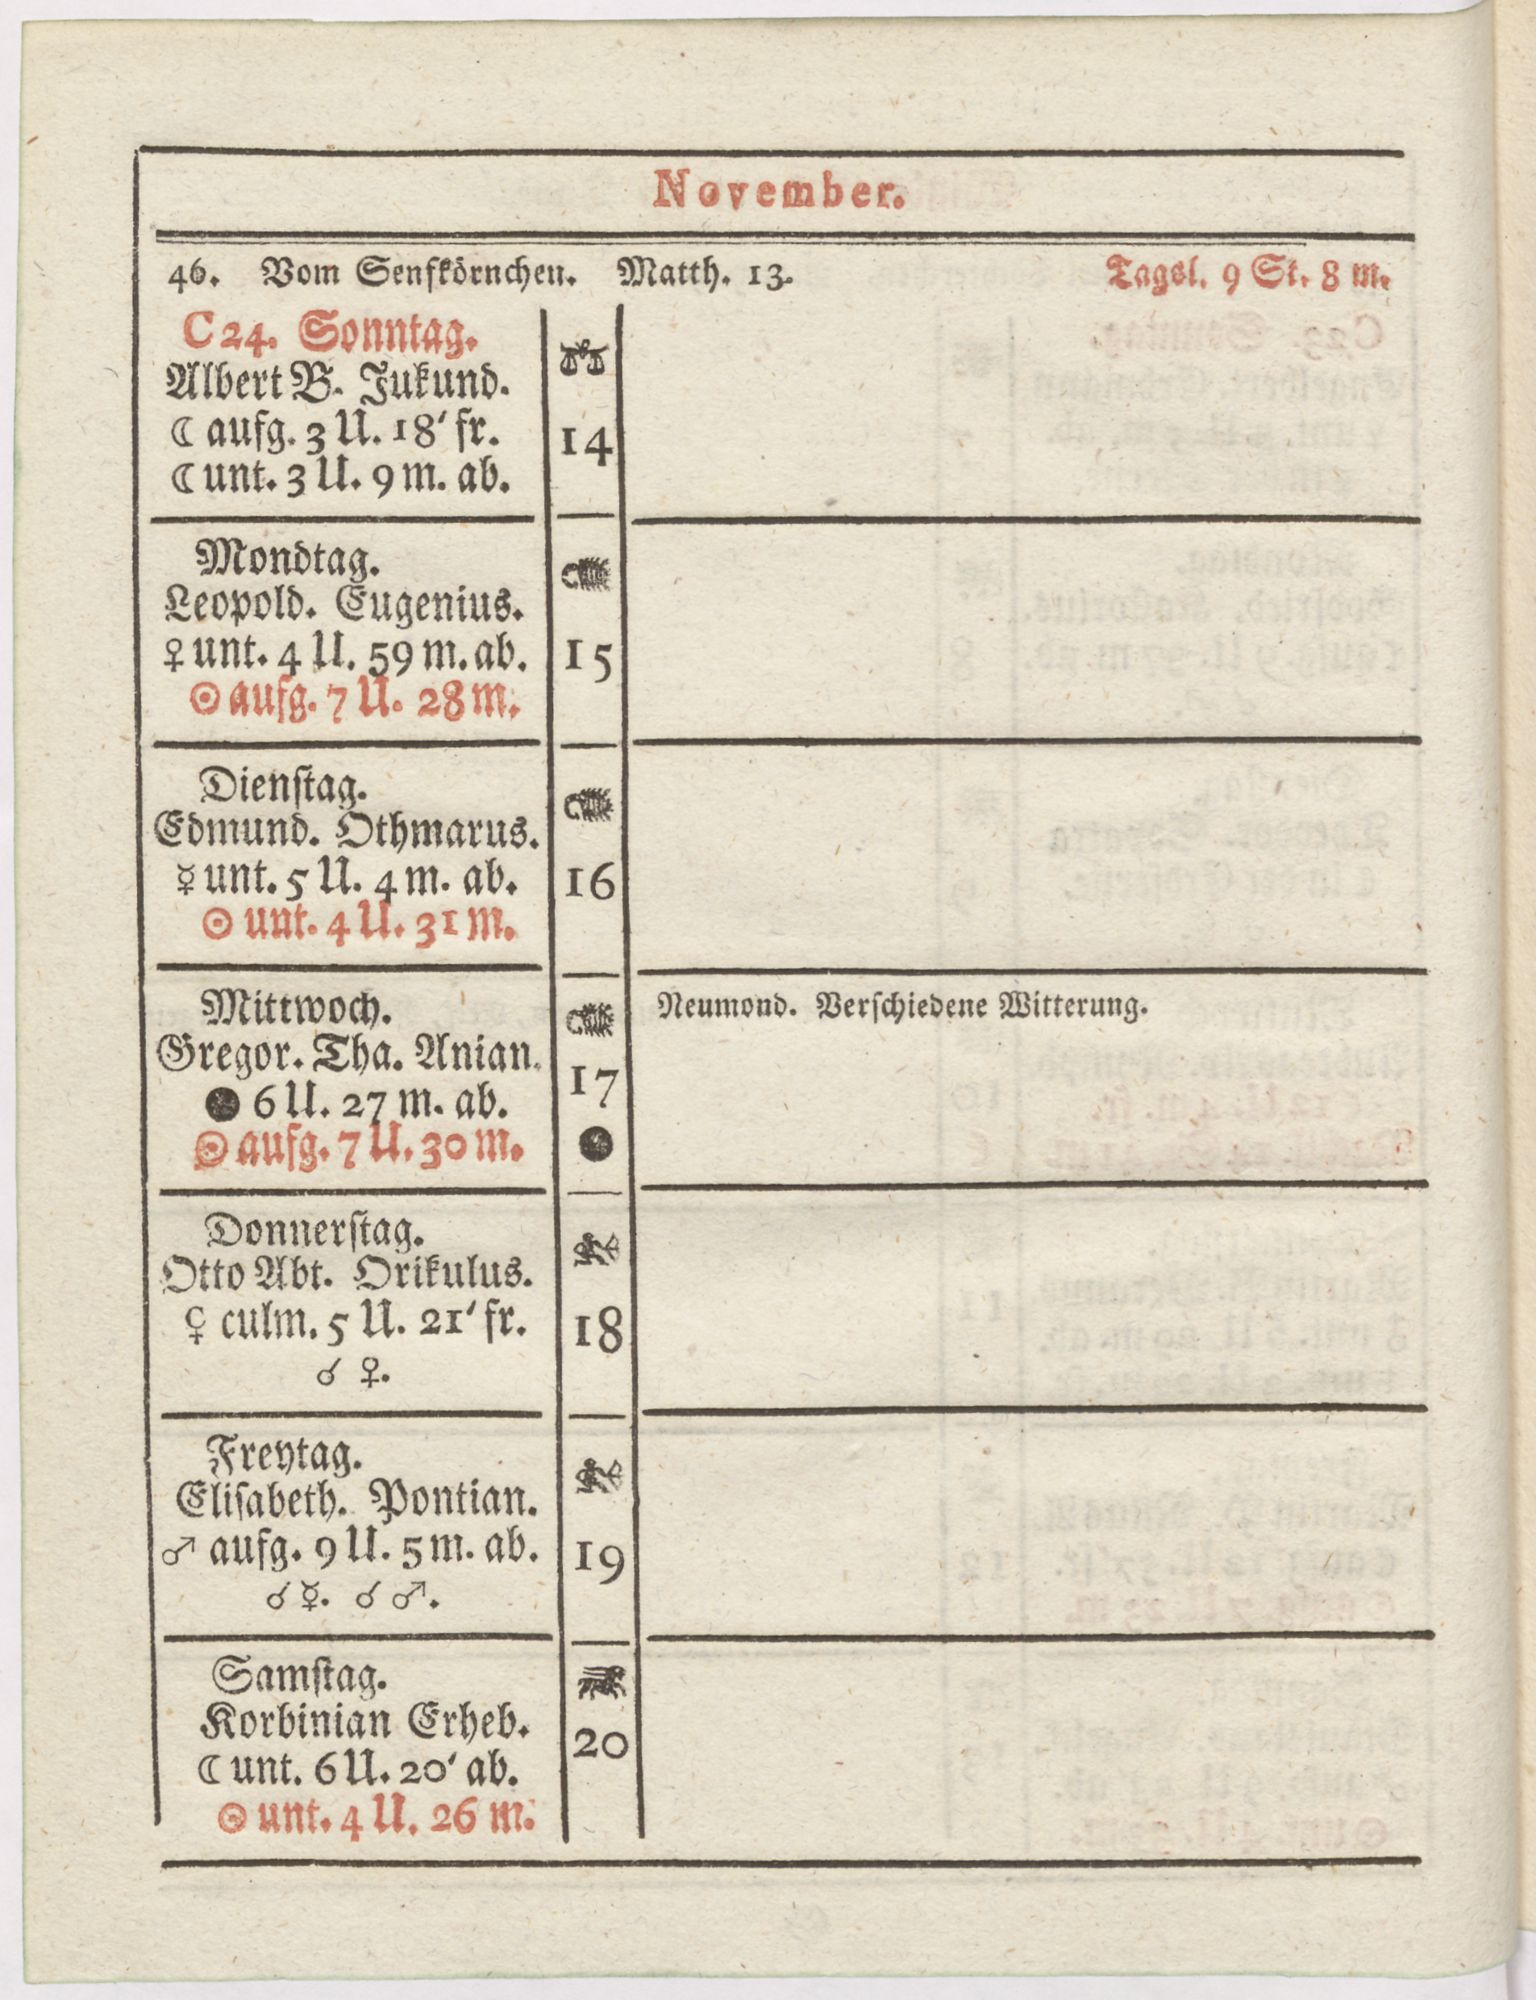 November.
46. Vom Senfkörnchen. Matth. 13. Tagsl. 9 St. 8 m.
C 24. Sonntag.
Albert B. Jukund.
☾ aufg. 3 U. 18' fr.
☾ unt. 3 U. 9 m. ab.
14
Mondtag.
Leopold. Eugenius.
♀ unt. 4 U. 59 m. ab.
☉ aufg. 7 U. 28 m.
15
Dienſtag.
Edmund. Othmarus.
☿ unt. 5 U. 4 m. ab.
☉ unt. 4 U. 31 m.
16
Mittwoch.
Gregor. Tha. Anian.
● 6 U. 27 m. ab.
☉ aufg. 7 U. 30 m.
17
Neumond. Verſchiedene Witterung.
Donnerſtag.
Otto Abt. Orikulus.
♀ culm. 5 U. 21' fr.
☌ ♀.
18
Freytag.
Eliſabeth. Pontian.
♂ aufg. 9 U. 5 m. ab.
☌ ☿. ☌ ♂.
19
Samſtag.
Korbinian Erheb.
☾ unt. 6 U. 20' ab.
☉ unt. 4 U. 26 m.
20